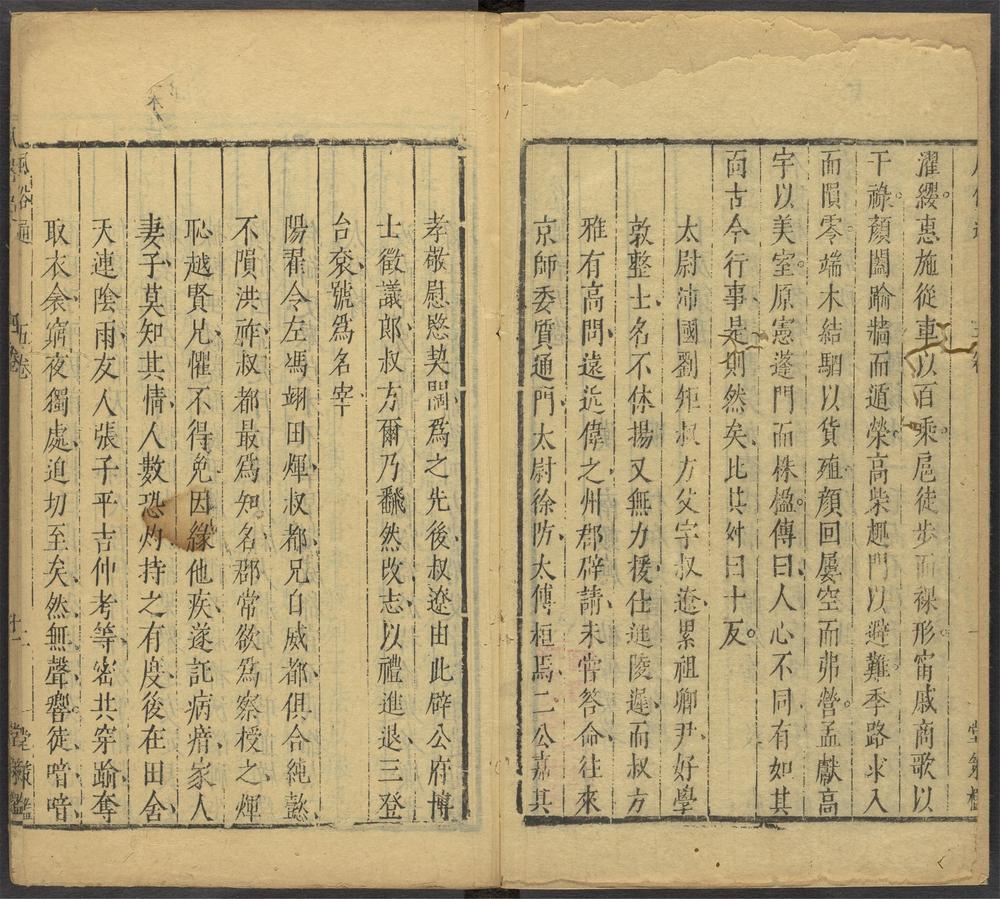 濯纓惠施從車以百乘扈徒步而祼形甯戚商歌以
干祿顏闔踰牆而遁榮高柴趣門以避難季路求入
而隕零端木結駟以貨殖顏回屢空而弗營孟獻高
宇以美室原憲蓬門而株楹傳曰人心不同有如其
面古今行事是則然矣比其舛曰十反
太尉沛國劉矩叔方父字叔遼累祖卿尹好學
敦整士名不休揚又無力援仕進陵遲而叔方
雅有高問遠近偉之州郡辟請未嘗答命往來
京師委質通門太尉徐防太傅桓焉二公嘉其
孝敬慰愍契闊爲之先後叔遼由此辟公府博
士徵議郎叔方爾乃翻然改志以禮進退三登
台袞號爲名宰
陽翟令左馮翊田煇叔都兄白威都俱合純懿
不隕洪祚叔都最爲知名郡常欲爲察授之煇
恥越賢兄懼不得免因緣他疾遂託病瘖家人
妻子莫知其情人數恐灼持之有度後在田舍
天連陰雨友人張子平吉仲考等密共穿踰奪
取衣衾窮夜獨處迫切至矣然無聲響徒喑喑
風俗通
五卷
十一
堂策檻